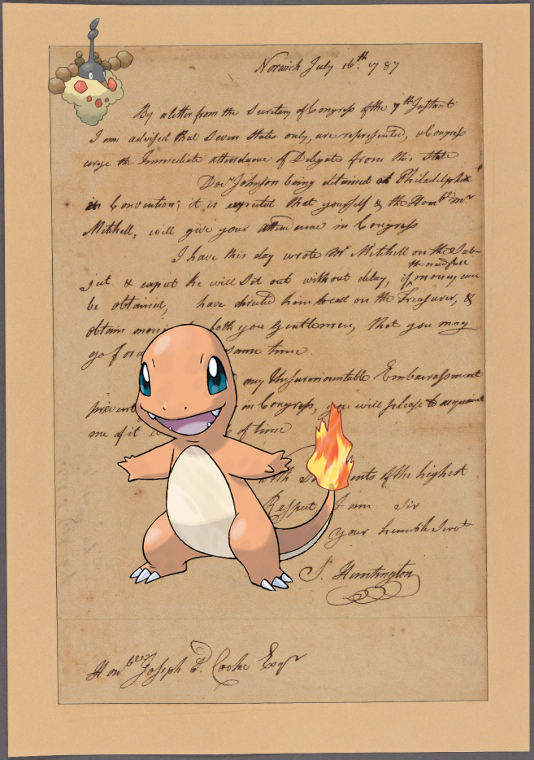 Norwich July 16th. 1787
By a letter from the Secretary of Congress of the 7th Instant
I am advised that Seven States only, are represented, & Congress
urge the Immediate attendance of Delegates from this State
Doctr Johnson being detained at Philadelphia
in Convention; it is expected that yourself & the Honble Mr
Mitchell, will give your attendance in Congress
I have this day wrote Mr Mitchell on the Sub-
ject & expect he will Set out without delay, if money can
the needfull
be obtained, have directed him to call on the Treasurer, &
obtain money both you Gentlemen, that you may
go same time.
any Unsurmountable Embarrassment
prevent in Congress, you will please to acquaint
one of it of time
of the highest
Respect I am Sir
your humble Servt
S. Huntington
Honble Joseph P. Cooke Esqr